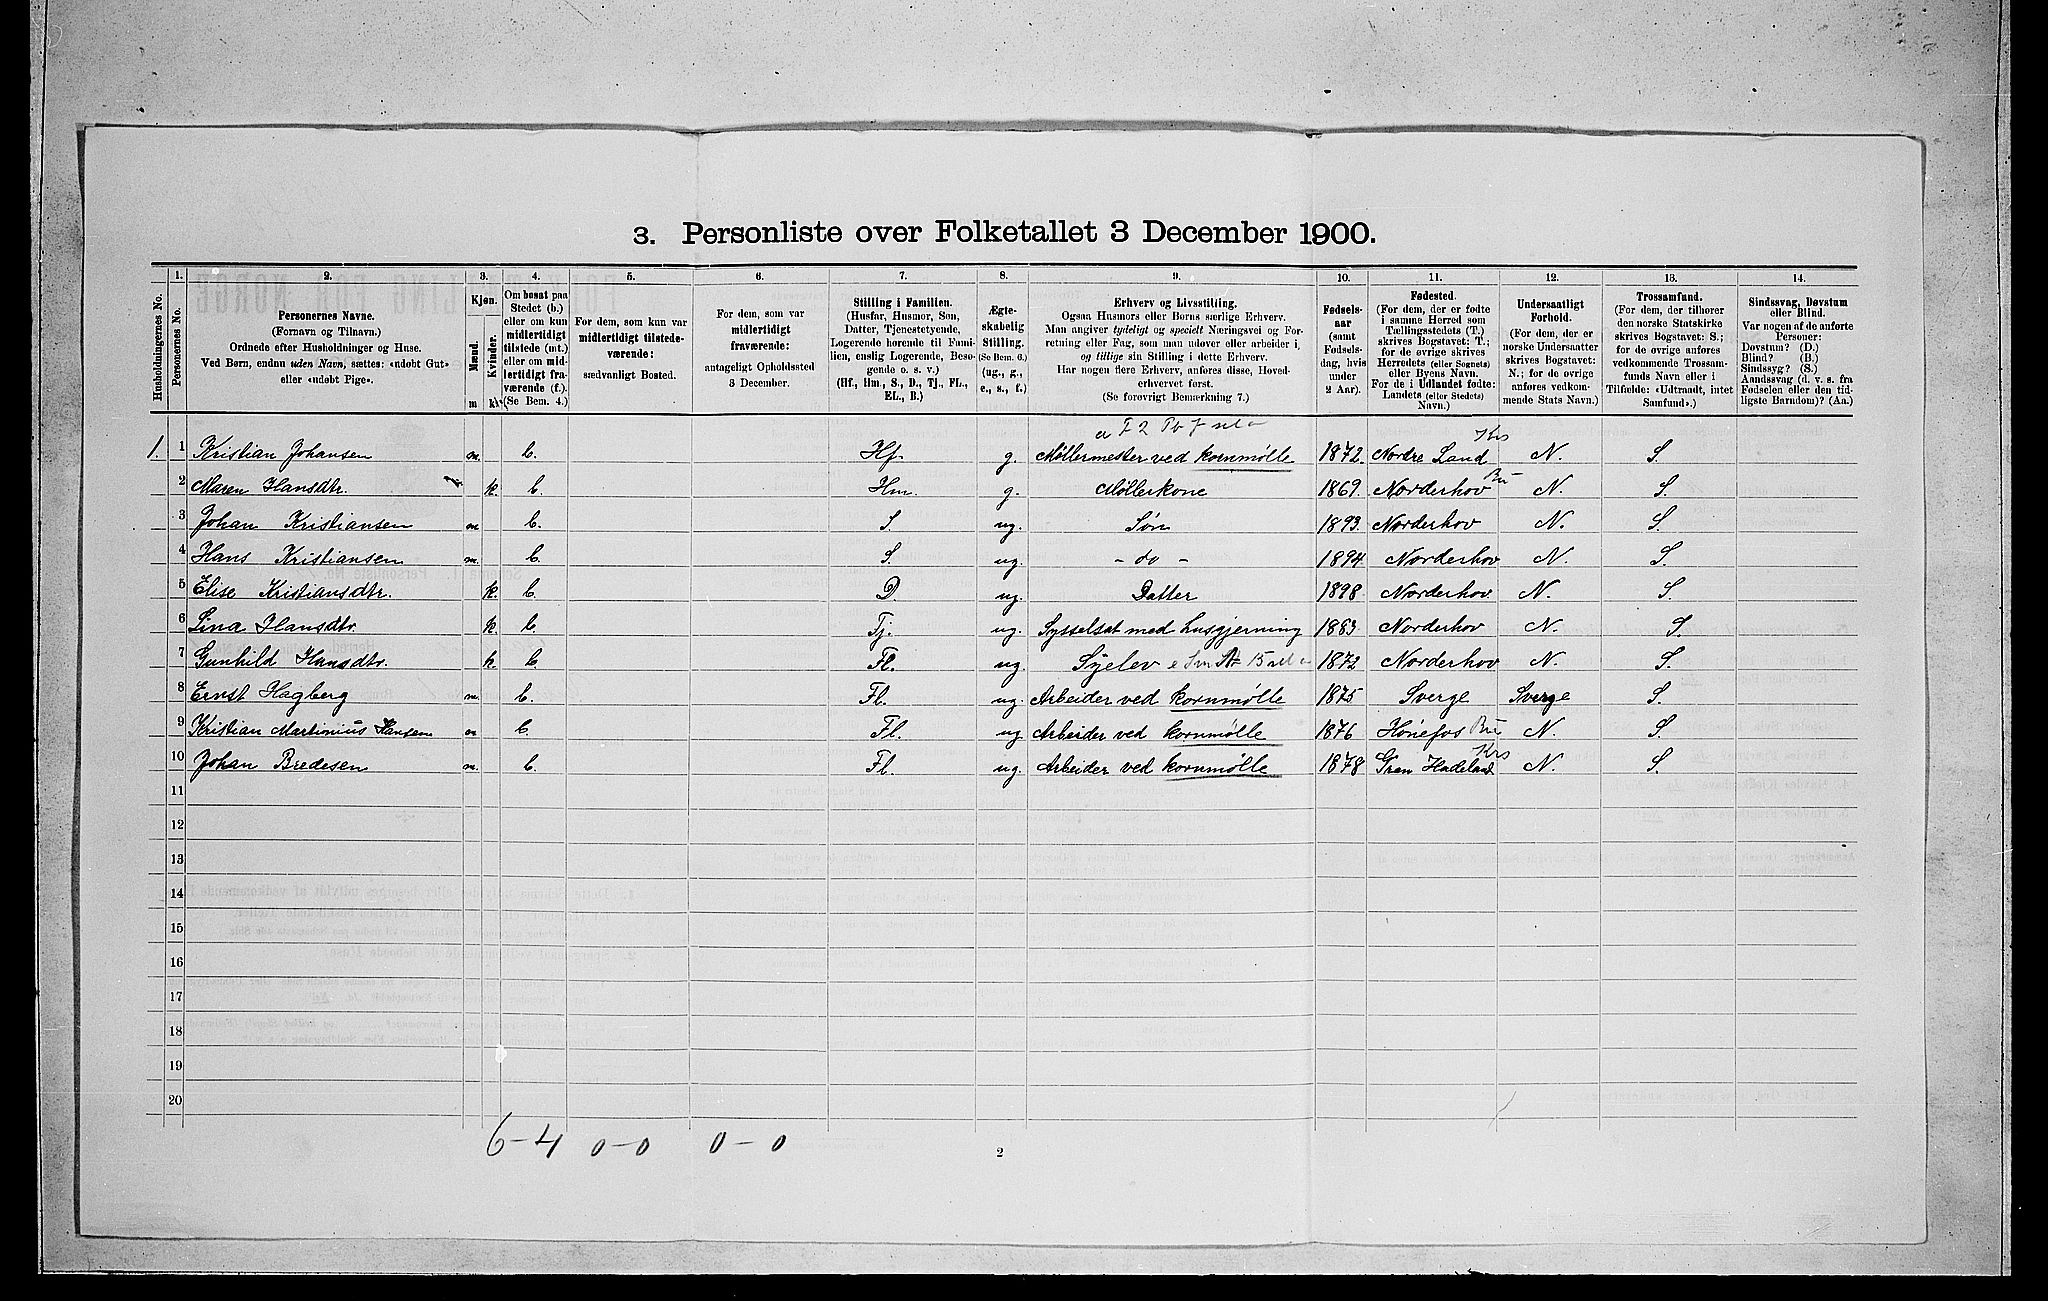 3. Personliste over Folketallet 3 December 1900.
Husholdningernes No.
1. Personernes No.
2. Personernes Navne. (Fornavn og Tilnavn.) Ordnede efter Husholdninger og Huse. Ved Børn, endnu uden Navn, sættes: «udøbt Gut» eller «udøbt Pige».
3. Kjøn. Mænd. m Kvinder. k
4. Om bosat paa Stedet (b.) eller om kun midlertidigt tilstede (mt.) eller om midlertidigt fraværende (f.). (Se Bem. 4.)
5. For dem, som kun var midlertidigt tilstedeværende: sædvanligt Bosted.
6. For dem, som var midlertidigt fraværende: antageligt Opholdssted 3 December.
7. Stilling i Familien. (Husfar, Husmor, Søn, Datter, Tjenestetyende, Logerende hørende til Familien, enslig Logerende, Besøgende o. s. v.) (Hf., Hm., S., D., Tj., FL., EL., B.)
8. Ægteskabelig Stilling. (Se Bem. 6.) (ug., g., e., s., f.)
9. Erhverv og Livsstilling. Ogsaa Husmors eller Børns særlige Erhverv. Man angiver tydeligt og specielt Næringsvei og Forretning eller Fag, som man udøver eller arbeider i, og tillige sin Stilling i dette Erhverv. Har nogen flere Erhverv, anføres disse, Hovederhvervet først. (Se forøvrigt Bemærkning 7.)
10. Fødselsaar (samt Fødselsdag, hvis under 2 Aar).
11. Fødested. (For dem, der er fødte i samme Herred som Tællingsstedets (T.) skrives Bogstavet: T.; for de øvrige skrives Herredets (eller Sognets) eller Byens Navn. For de i Udlandet fødte: Landets (eller Stedets) Navn.)
12. Undersaatligt Forhold. (For dem, der er norske Undersaatter skrives Bogstavet: N.; for de øvrige anføres vedkommende Stats Navn.)
13. Trossamfund. (For dem, der tilhører den norske Statskirke skrives Bogstavet: S.; for de øvrige anføres vedkommende Trossamfunds Navn eller i Tilfælde: «Udtraadt, intet Samfund».)
14. Sindssvag, Døvstum eller Blind. Var nogen af de anførte Personer: Døvstum? (D.) Blind? (B.) Sindssyg? (S.) Aandssvag (d. v. s. fra Fødselen eller den tidligste Barndom)? (Aa.)
1. 1 Kristian Johansen m. b. Hf. g. Møllermester ved kornmølle 1872. Nordre Land N. S.
2 Maren Hansdtr. k. b. Hm. g. Møllerkone 1869. Norderhov Bu N. S.
3 Johan Kristiansen m b. S. ug. Søn 1893. Norderhov N. S.
4 Hans Kristiansen m. b. S. ug. - do - 1894. Norderhov N. S.
5 Elise Kristiansdtr. k. b. D ug. Datter 1898 Norderhov N. S.
6 Lina Hansdtr. k. b. Tj. ug. Sysselsat med husgjerning 1883. Norderhov N. S.
7 Gunhild Hansdtr. k. b. Fl. ug. 1872 Norderhov N. S.
8 Ernst Hagberg m. b. Fl. ug. Arbeider ved kornmølle 1875 Sverge Sverge S.
9 Kristian Martinius Hansen m b. Fl. ug Arbeider ved kornmølle 1876 Hønefos Bu N. S.
10 Johan Bredesen m. b. Fl. ug. Arbeider ved kornmølle 1878 Gran Hadeland Krs N. S.
11
12
13
14
15
16
17
18
19
20
6-4 0-0 0-0
2